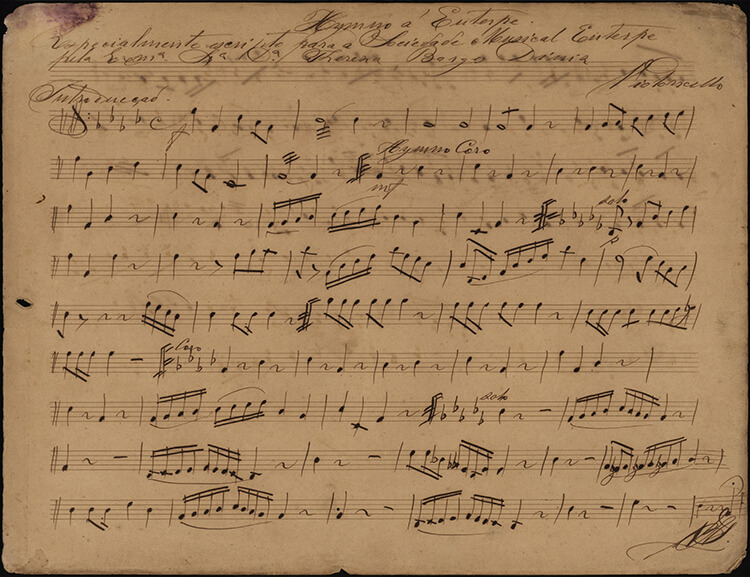 Hymno a' Euterpe.
Especialmente escripto para a Sociedade Musical Euterpe
pela Exmª Srª Dª Thereza Borges
Violoncello
Introducção.
Hymno Coro
mf
solo
p
Coro
solo